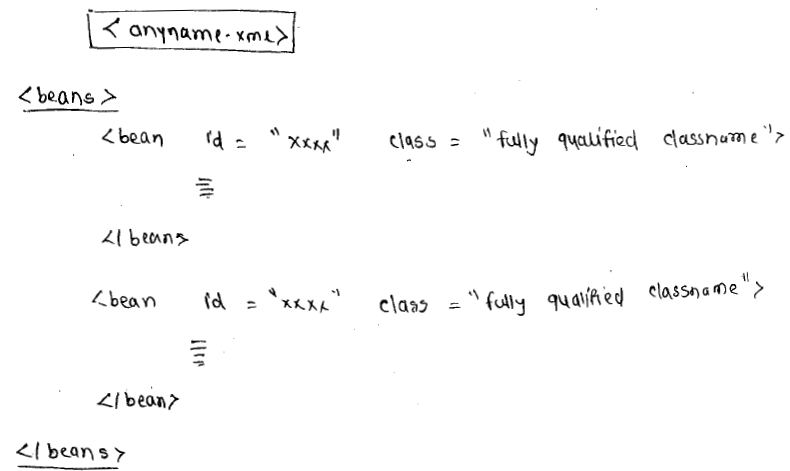 <anyname.xml>
<beans>
<bean id = "xxxx" class = "fully qualified classname">
</bean>
<bean id = "xxxx" class = "fully qualified classname">
</bean>
</beans>